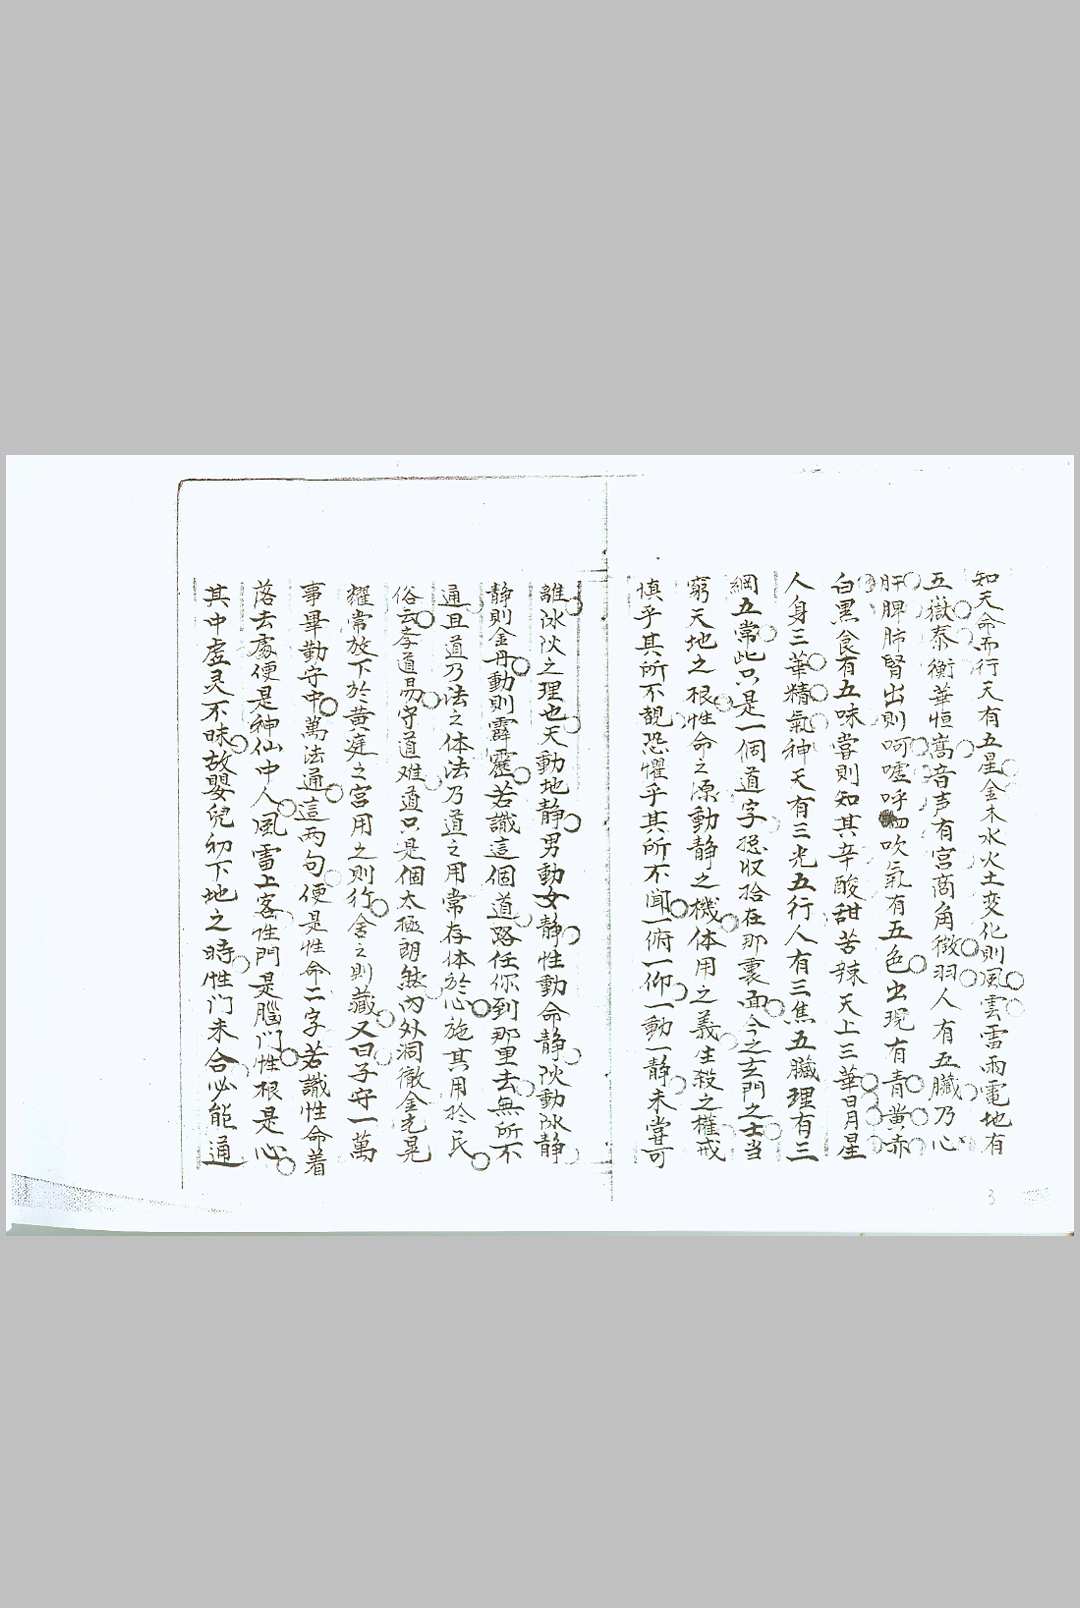 知天命而行天有五星金木水火土变化則風雲雷雨電地有
五嶽泰衡華恒嵩音声有宮商角徵羽人有五臟乃心
肝脾肺腎出则呵噓呼呬吹氣有五色出现有青黄赤
白黑食有五味嘗則知其辛酸甜苦辣天上三華日月星
人身三華精氣神天有三光五行人有三焦五臟理有三
綱五常此只是一個道字總収拾在那裏面今之玄門之士当
窮天地之根性命之源動静之機体用之義生殺之權戒
慎乎其所不覩恐懼乎其所不闻一俯一仰一動一静未嘗可
離冰火之理也天動地静男動女静性動命静火動水静
静則金丹動則霹靂若識這個道路任你到那里去無所不
通且道乃法之体法乃道之用常存体於心施其用於民
俗云李道易守道难道只是個太極朗然内外洞徹金光晃
耀常放下於黄庭之宮用之则行舍之则藏又曰子守一萬
事畢勤守中萬法通這两句便是性命二字若識性命着
落去處便是神仙中人風雷上客性門是腦门性根是心
其中虚灵不昧故嬰兒初下地之時性门未合必能通
3